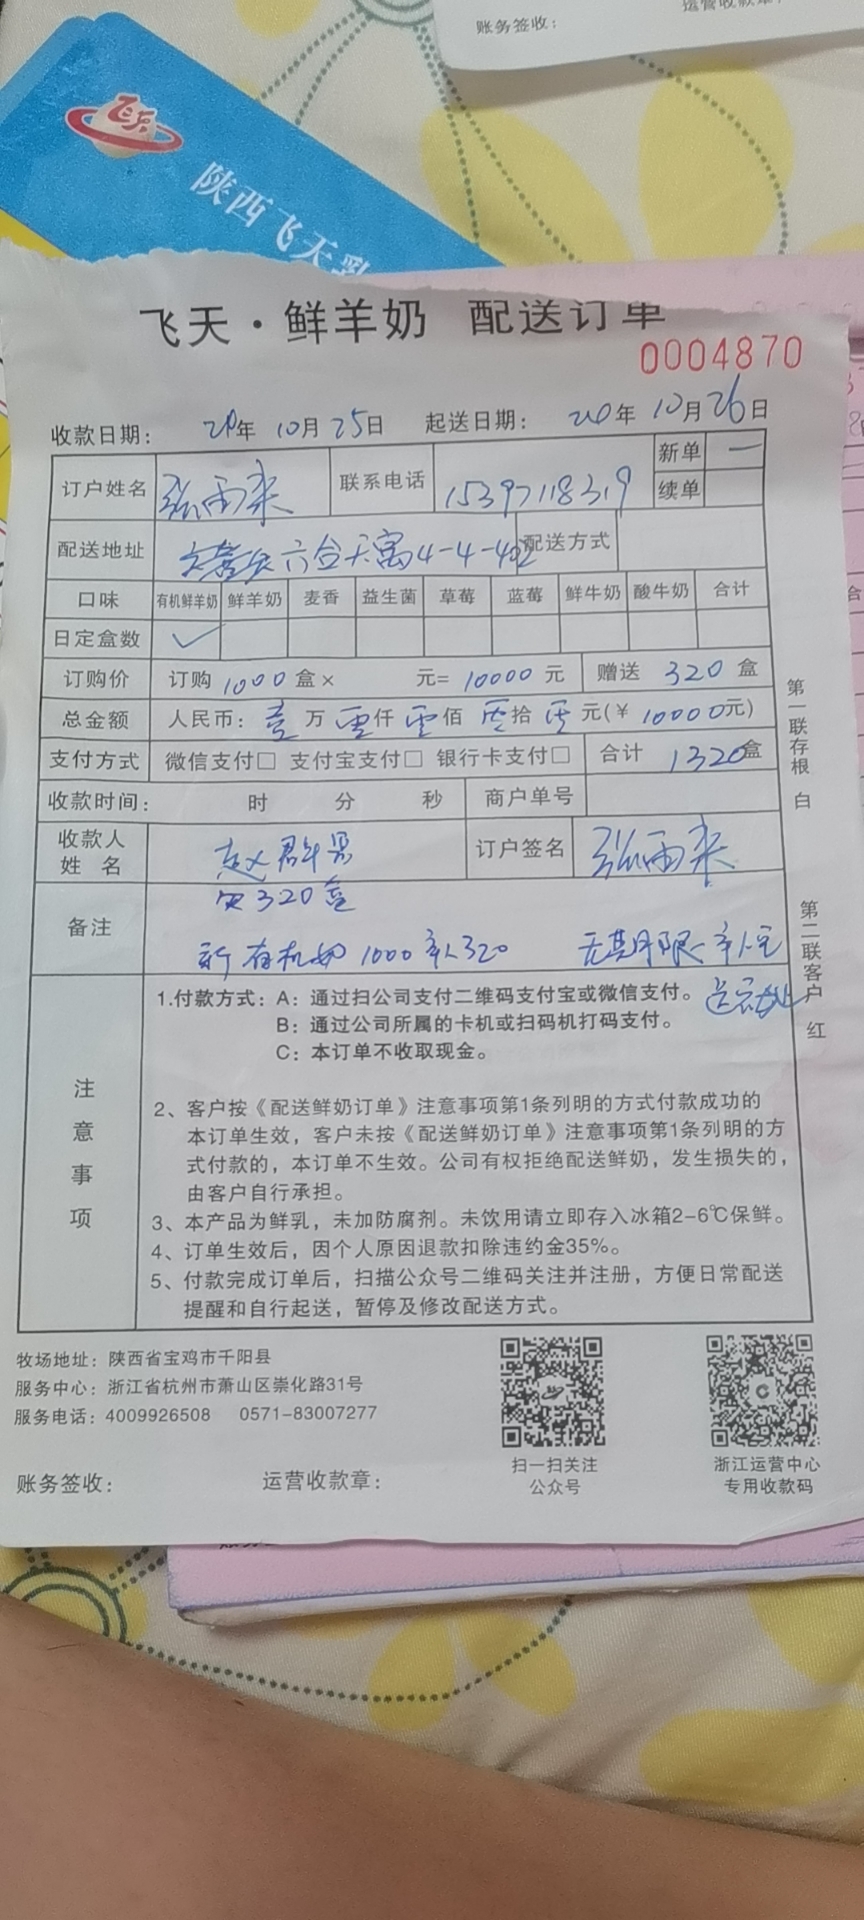 账务签收：
运营收款章：
飞天
陕西飞天乳
飞天·鲜羊奶 配送订单
0004870
收款日期： 20年 10月 25日 起送日期： 2020年 10月 26日
订户姓名 张雨来 联系电话 15397118319 新单 一
续单
配送地址 六合天寓4-4-402 配送方式
口味 有机鲜羊奶 鲜羊奶 麦香 益生菌 草莓 蓝莓 鲜牛奶 酸牛奶 合计
日定盒数 ✓
订购价 订购 1000 盒× 元= 10000 元 赠送 320 盒
总金额 人民币： 壹 万 零 仟 零 佰 零 拾 零 元(¥ 10000元)
支付方式 微信支付□ 支付宝支付□ 银行卡支付□ 合计 1320盒
收款时间： 时 分 秒 商户单号
收款人姓名 赵群 订户签名 张雨来
320盒
备注 有机奶 1000 320 无期限
注意事项
1.付款方式：A：通过扫公司支付二维码支付宝或微信支付。
B：通过公司所属的卡机或扫码机打码支付。
C：本订单不收取现金。
2、客户按《配送鲜奶订单》注意事项第1条列明的方式付款成功的
本订单生效，客户未按《配送鲜奶订单》注意事项第1条列明的方
式付款的，本订单不生效。公司有权拒绝配送鲜奶，发生损失的，
由客户自行承担。
3、本产品为鲜乳，未加防腐剂。未饮用请立即存入冰箱2-6℃保鲜。
4、订单生效后，因个人原因退款扣除违约金35%。
5、付款完成订单后，扫描公众号二维码关注并注册，方便日常配送
提醒和自行起送，暂停及修改配送方式。
第一联存根 白
第二联客户 红
牧场地址：陕西省宝鸡市千阳县
服务中心：浙江省杭州市萧山区崇化路31号
服务电话：4009926508 0571-83007277
扫一扫关注
公众号
浙江运营中心
专用收款码
账务签收： 运营收款章：